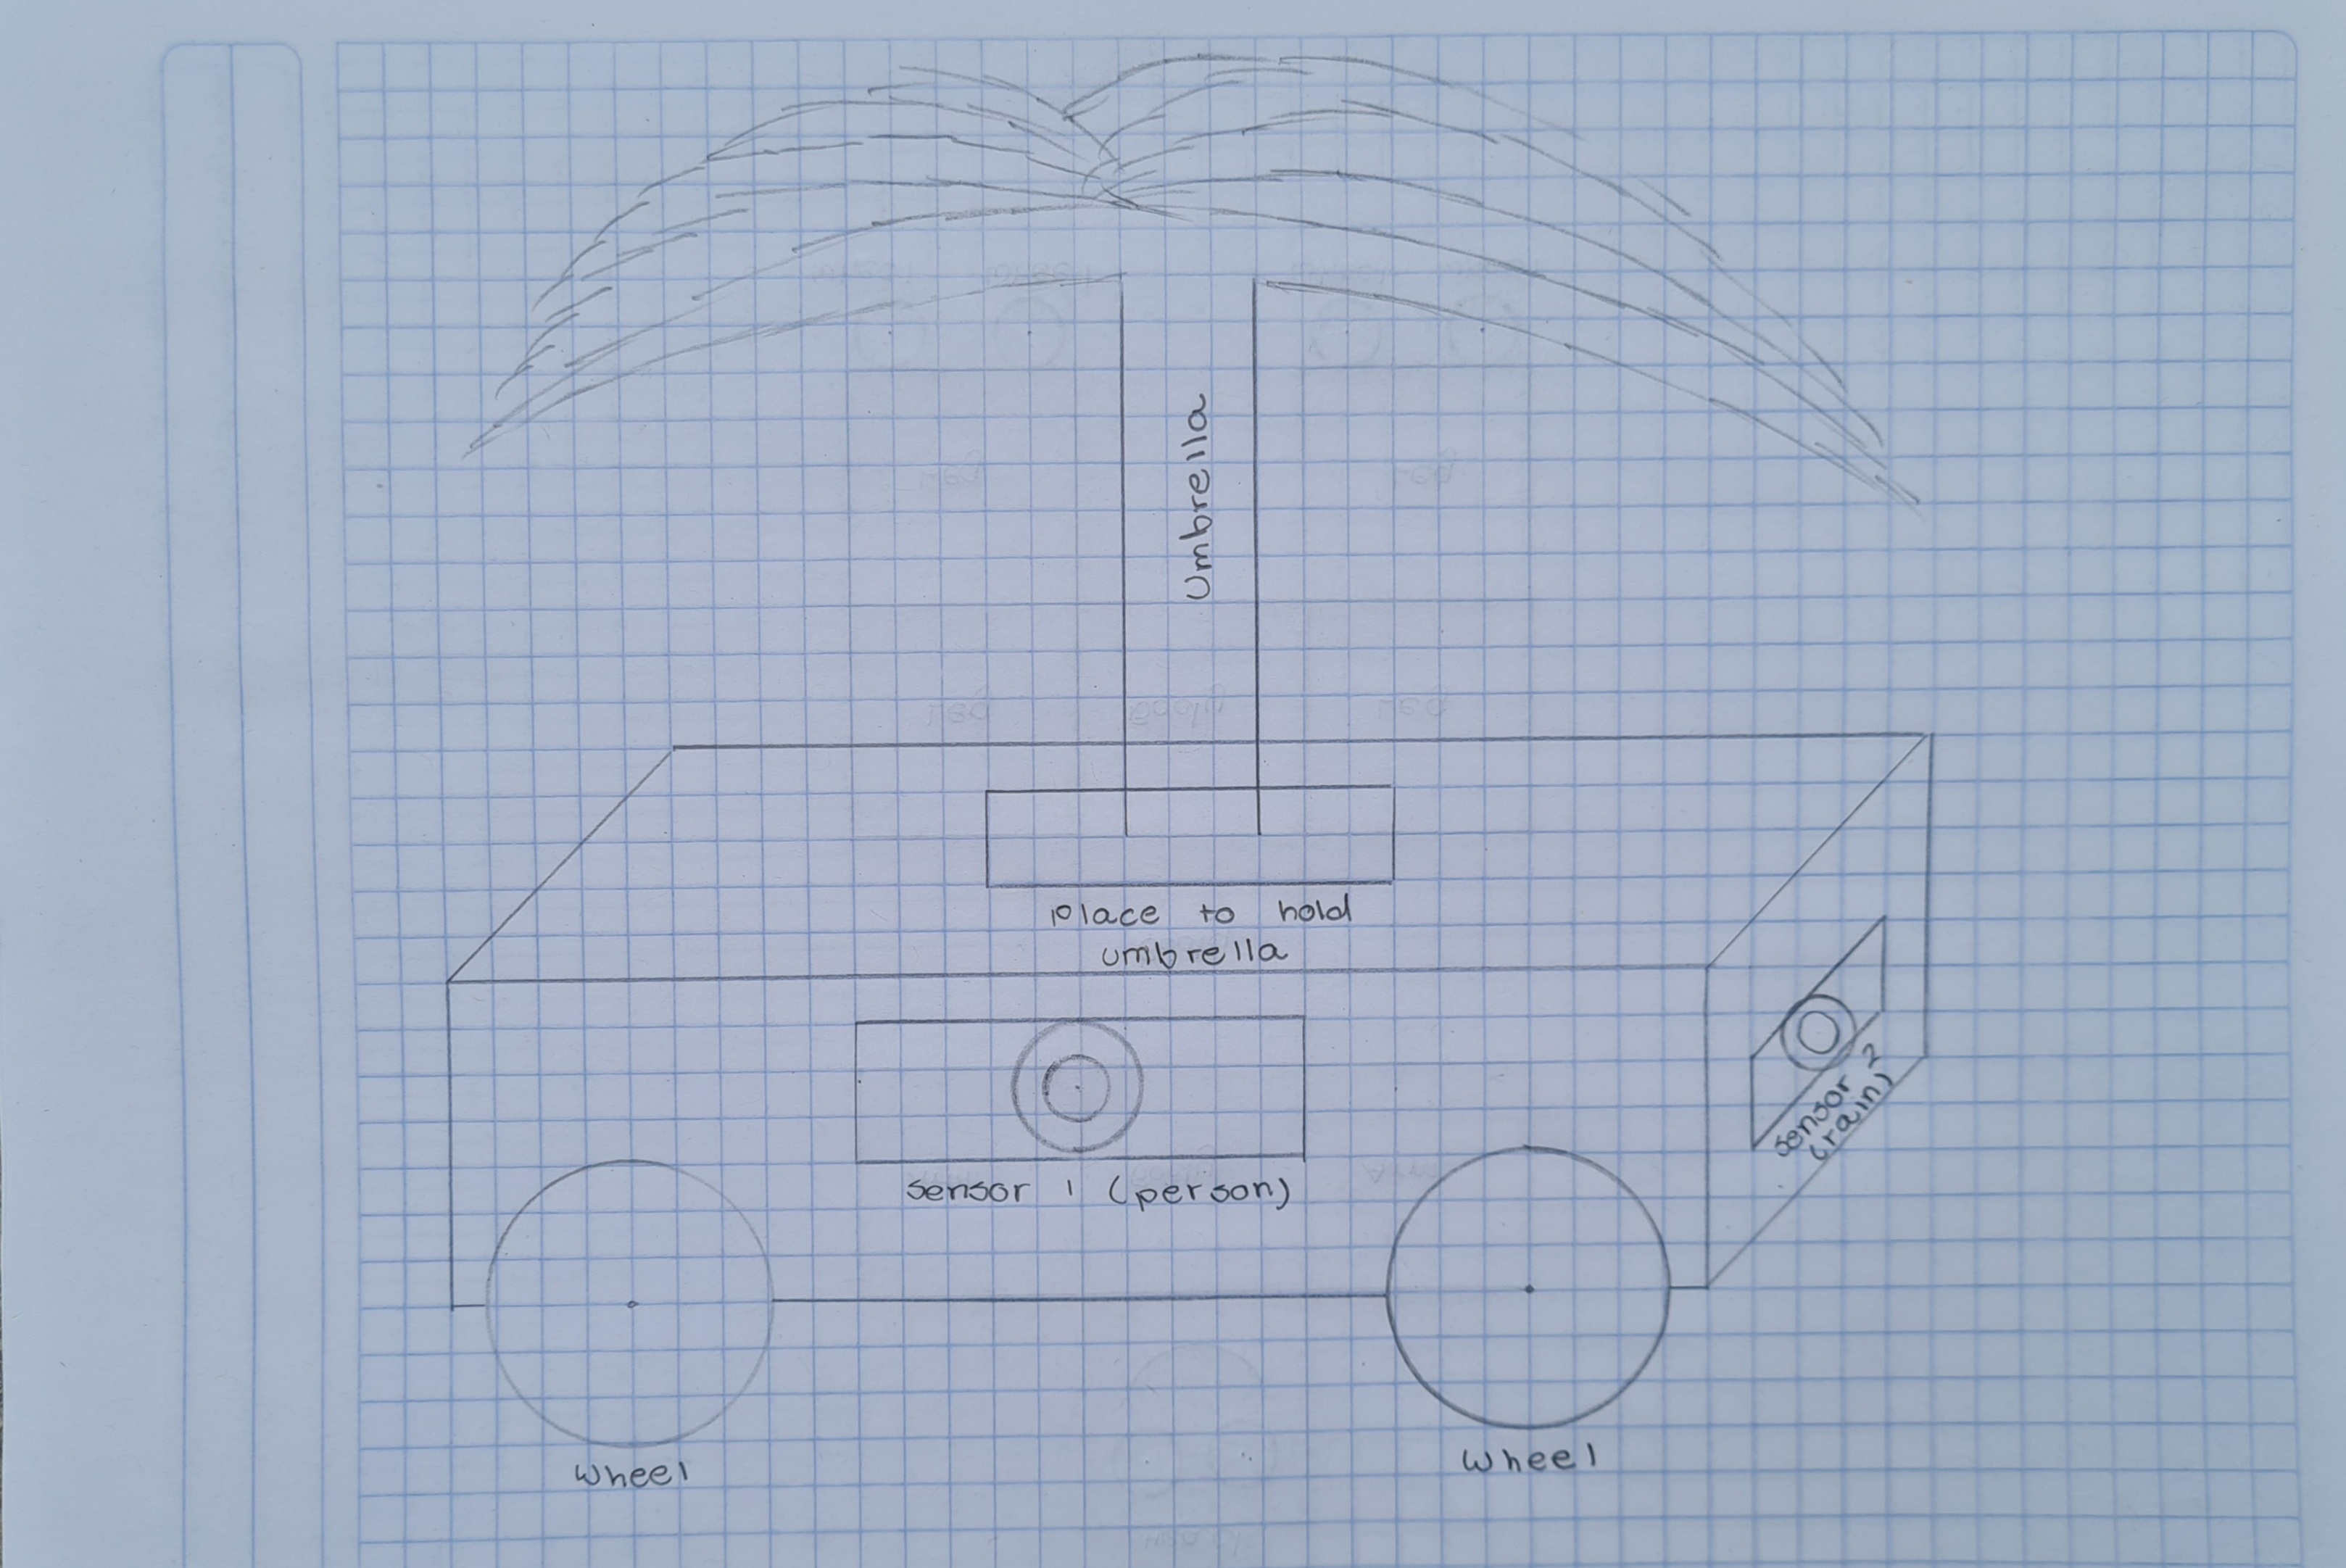 Umbrella
Place to hold
umbrella
sensor 1 (person)
sensor 2
(rain)
Wheel
Wheel